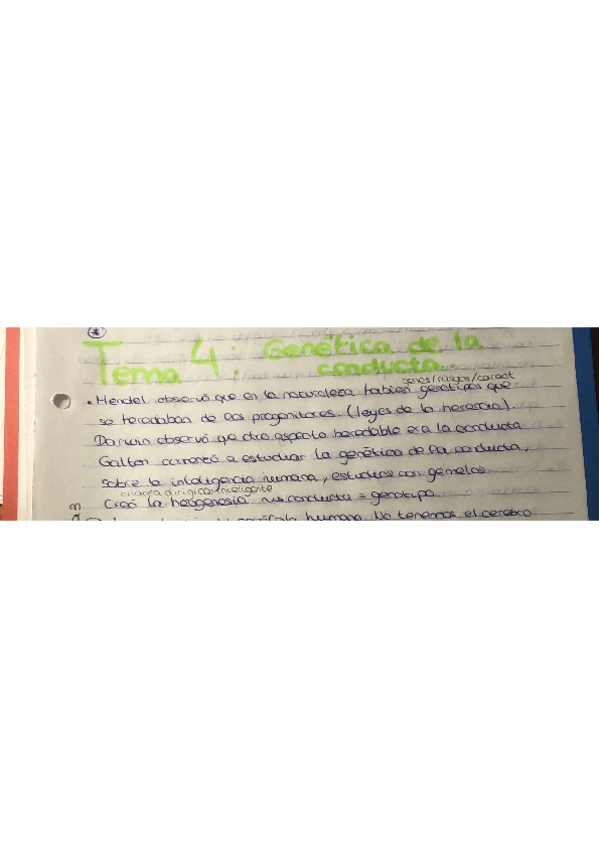 *
Tema 4: Genética de la
conducta.
genes/rasgos/caract
• Mendel observó que en la naturaleza habían genotipos que
se heredaban de los progenitores. (leyes de la herencia).
Darwin observó que otro aspecto heredable era la conducta
Galton comenzó a estudiar la genética de la conducta,
sobre la inteligencia humana, estudios con gemelos.
crianza dirigida inteligente
Creó la conducta = genotipo.
humana. No tenemos el cerebro